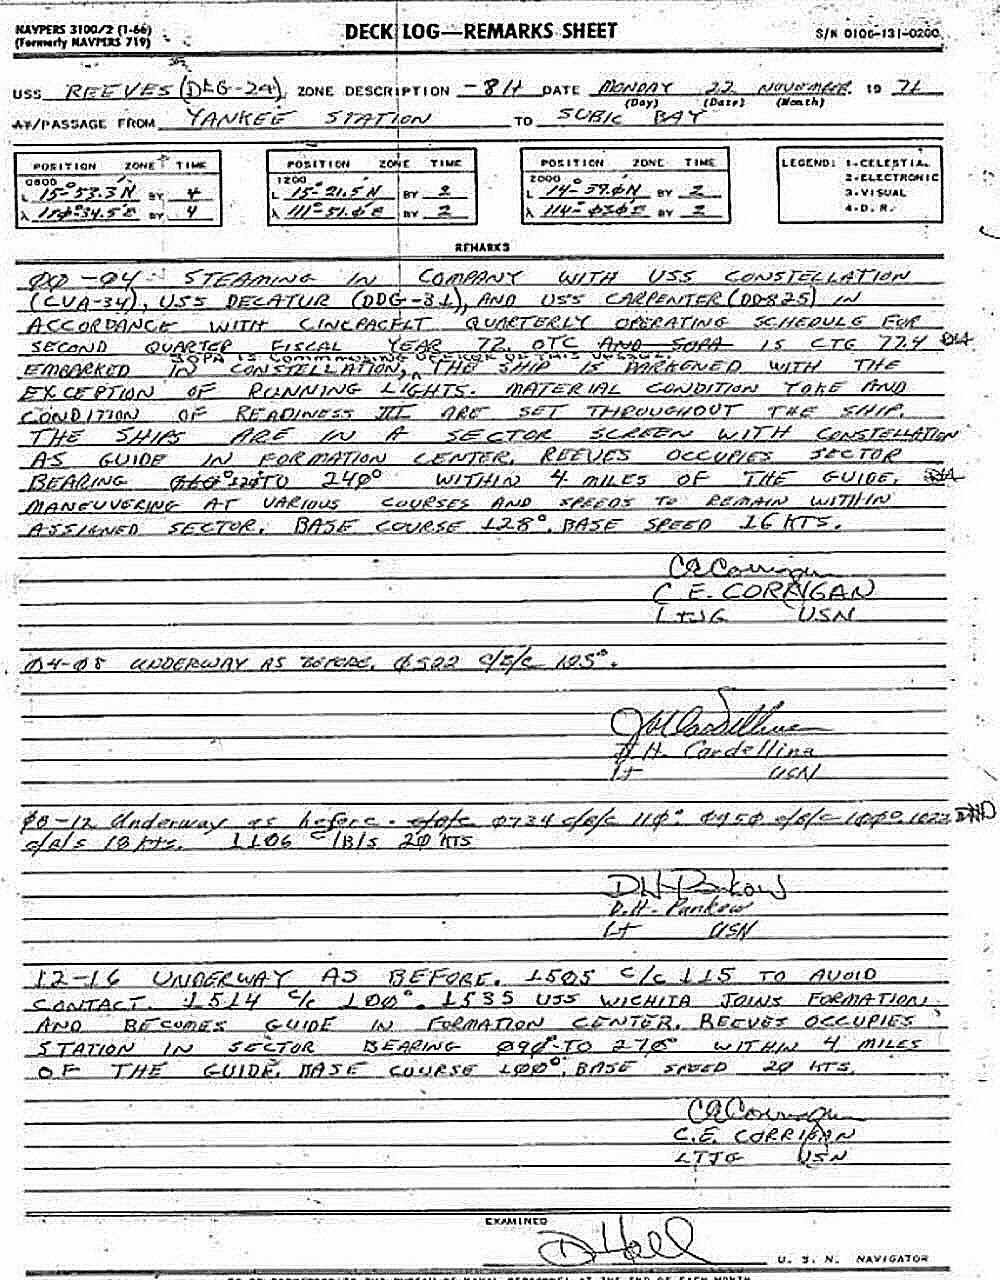 NAVPERS 3100/2 (1-66)
(Formerly NAVPERS 719)
DECK LOG—REMARKS SHEET
S/N 0106-131-0200
USS REEVES (DLG-24) ZONE DESCRIPTION -8H DATE MONDAY 22 NOVEMBER 19 71
(Day) (Date) (Month)
AT/PASSAGE FROM YANKEE STATION TO SUBIC BAY
POSITION ZONE TIME
0800
L 15°-53.3 N BY 4
λ 34.5'E BY 4
POSITION ZONE TIME
1200
L 15°-21.5 N BY 2
λ 111°-51.0 E BY 2
POSITION ZONE TIME
2000
L 14°-39.0 N BY 2
λ 114°-03.0 E BY 2
LEGEND: 1-CELESTIAL
2-ELECTRONIC
3-VISUAL
4-D. R.
REMARKS
00-04 STEAMING IN COMPANY WITH USS CONSTELLATION
(CVA-34), USS DECATUR (DDG-31), AND USS CARPENTER (DD825) IN
ACCORDANCE WITH CINCPACFLT QUARTERLY OPERATING SCHEDULE FOR
SECOND QUARTER FISCAL YEAR 72. OTC AND SOPA IS CTG 77.4
SOPA IS COMMANDING OFFICER OF THIS VESSEL.
EMBARKED IN CONSTELLATION, THE SHIP IS DARKENED WITH THE
EXCEPTION OF RUNNING LIGHTS. MATERIAL CONDITION YOKE AND
CONDITION OF READINESS III ARE SET THROUGHOUT THE SHIP.
THE SHIPS ARE IN A SECTOR SCREEN WITH CONSTELLATION
AS GUIDE IN FORMATION CENTER. REEVES OCCUPIES SECTOR
BEARING 120° TO 240° WITHIN 4 MILES OF THE GUIDE,
MANEUVERING AT VARIOUS COURSES AND SPEEDS TO REMAIN WITHIN
ASSIGNED SECTOR. BASE COURSE 128°, BASE SPEED 16 KTS.
C E Corrigan
C E. CORRIGAN
LTJG USN
04-08 UNDERWAY AS BEFORE. 0502 C/B/C 105°.
D. H. Cardellina
Lt USN
08-12 Underway as before. c/b/c 0734 c/b/c 110°. 0950 c/b/c 100°. 1022
c/b/s 18 kts. 1106 C/B/S 20 KTS
D H Pankow
D.H. Pankow
Lt USN
12-16 UNDERWAY AS BEFORE. 1505 C/C 115 TO AVOID
CONTACT. 1514 C/C 100°. 1535 USS WICHITA JOINS FORMATION
AND BECOMES GUIDE IN FORMATION CENTER. REEVES OCCUPIES
STATION IN SECTOR BEARING 090° TO 270° WITHIN 4 MILES
OF THE GUIDE. BASE COURSE 100°, BASE SPEED 20 KTS.
C E Corrigan
C.E. CORRIGAN
LTJG USN
EXAMINED
D Hall
U. S. N. NAVIGATOR